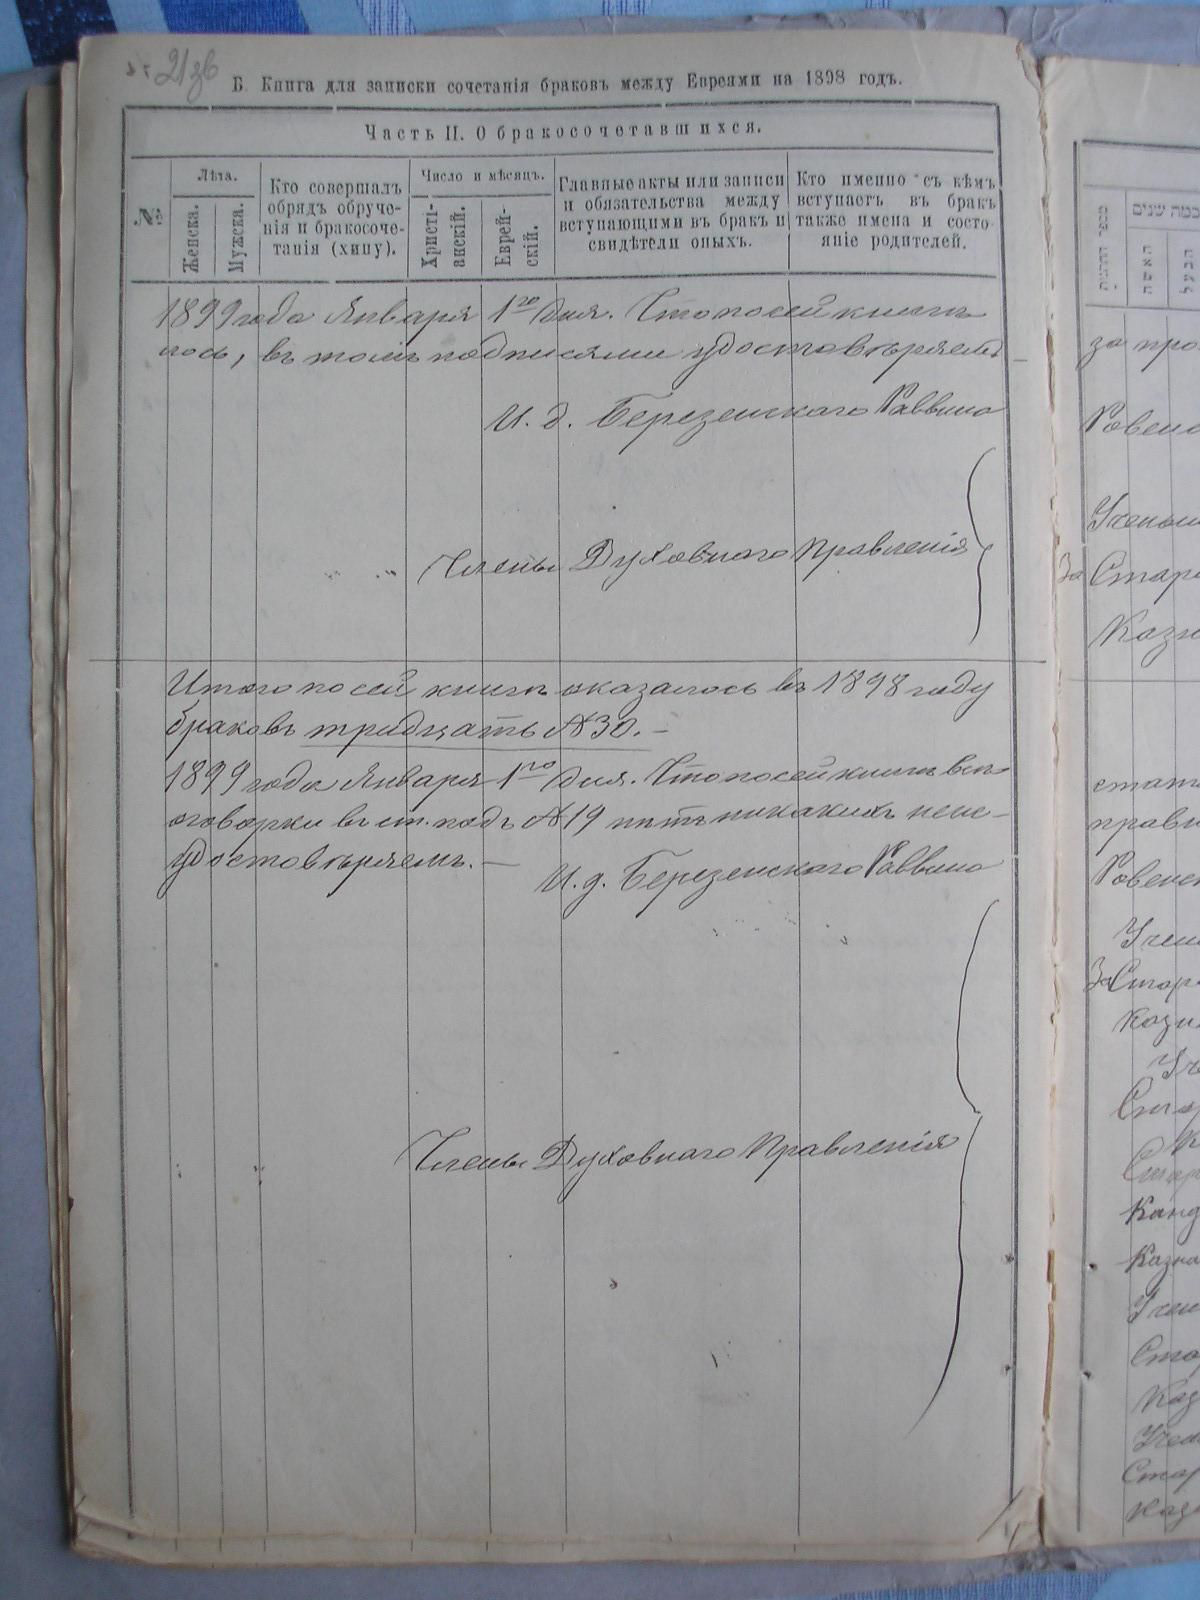 21 зв
Б. Книга для записки сочетанія браковъ между Евреями на 1898 годъ.
Часть II. О бракосочетавшихся.
№
Лѣта.
Женска.
Мужска.
Кто совершалъ
обрядъ обруче-
нія и бракосоче-
танія (хипу).
Число и мѣсяцъ.
Христі-
анскій.
Еврей-
скій.
Главные акты или записи
и обязательства между
вступающими въ бракъ и
свидѣтели оныхъ.
Кто именно съ кѣмъ
вступаетъ въ бракъ
также имена и состо-
яніе родителей.
1899 года Января 1го дня. Что по сей книгѣ
лось, въ томъ подписями удостовѣряемъ
И. д. Березенскаго Раввина
Члены Духовнаго Правленія
Итого по сей книгѣ оказалось въ 1898 году
браковъ тридцать № 30. —
1899 года Января 1го дня. Что по сей книгѣ
оговорки въ ст. подъ № 19 нѣтъ никакихъ
удостовѣряемъ. —
И. д. Березенскаго Раввина
Члены Духовнаго Правленія
האשה
הבעל
за про
Ровенс
Учены
За Старо
Казн
стат
прави
Ровенск
Учен
За Старо
Казн
Уч
Стар
Стар
Канд
Казна
Учен
Ста
Каз
Учен
Стар
Каз